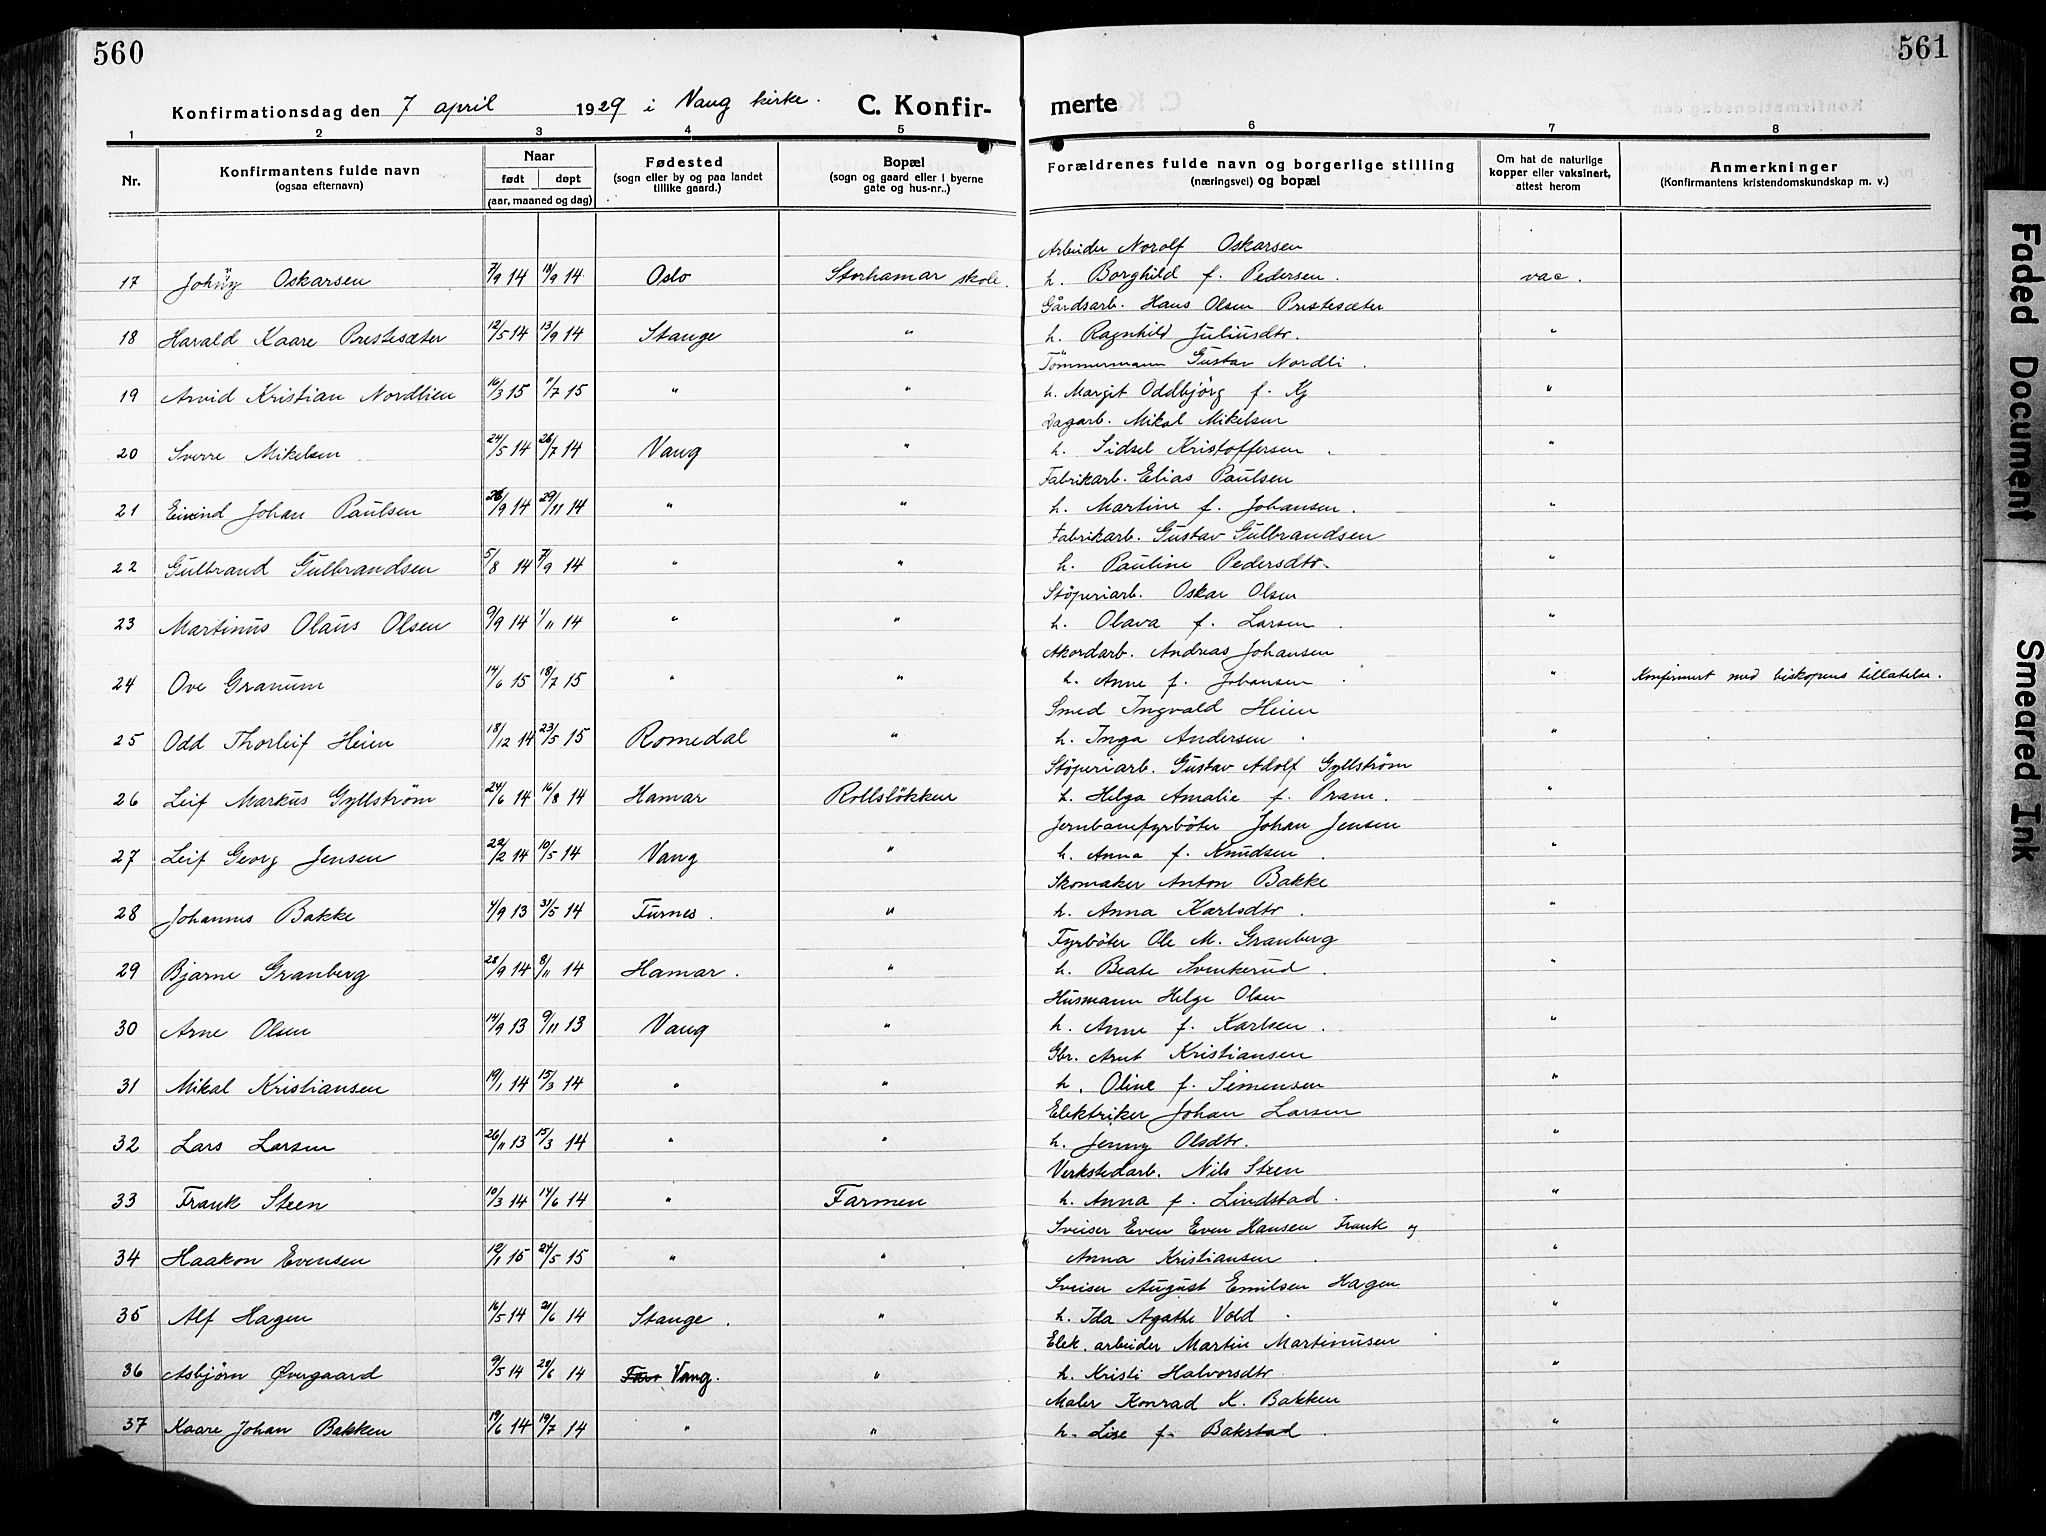 560
561
Konfirmationsdag den 7 april 1929 i Vang kirke.
C. Konfir-
merte
1 2 3 4 5 6 7 8
Nr.
Konfirmantens fulde navn
(ogsaa efternavn)
Naar
født døpt
(aar, maaned og dag)
Fødested
(sogn eller by og paa landet
tillike gaard.)
Bopæl
(sogn og gaard eller i byerne
gate og hus-nr..)
Forældrenes fulde navn og borgerlige stilling
(næringsvei) og bopæl
Om hat de naturlige
kopper eller vaksinert,
attest herom
Anmerkninger
(Konfirmantens kristendomskundskap m. v.)
Arbeider Norolf Oskarsen
17 Johny Oskarsen 7/9 14 18/9 14 Oslo Storhamar skole. h. Borghild f. Pedersen. vac.
Gårdsarb. Hans Olsen Prestesæter
18 Harald Kaare Prestesæter 12/5 14 13/9 14 Stange " h. Ragnhild Juliusdtr. "
Tömmermann Gustav Nordli.
19 Arvid Kristian Nordlien 16/3 15 11/7 15 " " h. Margit Oddbjörg f. Kj "
Dagarb. Mikal Mikelsen
20 Sverre Mikelsen 24/5 14 26/7 14 Vang " h. Sidsel Kristoffersen. "
Fabrikarb. Elias Paulsen
21 Eivind Johan Paulsen 26/9 14 29/11 14 " " h. Martine f. Johansen. "
Fabrikarb. Gustav Gulbrandsen
22 Gulbrand Gulbrandsen 5/8 14 7/9 14 " " h. Pauline Pedersdtr. "
Stöperiarb. Oskar Olsen
23 Martinus Olaus Olsen 9/9 14 1/11 14 " " h. Olava f. Larsen. "
Akordarb. Andreas Johansen
24 Ove Granum 14/6 15 18/7 15 " " h. Anne f. Johansen. " Konfirmert med biskopens tillatelse.
Smed Ingvald Heien
25 Odd Thorleif Heien 18/12 14 23/5 15 Romedal " h. Inga Andersen. "
Stöperiarb. Gustav Adolf Gyllström
26 Leif Markus Gyllström 24/6 14 16/8 14 Hamar Rollslökken h. Helga Amalie f. Pram. "
Jernbanefyrböter Johan Jensen
27 Leif Georg Jensen 22/2 14 10/5 14 Vang " h. Anna f. Knudsen. "
Skomaker Anton Bakke
28 Johannes Bakke 4/9 13 31/5 14 Furnes. " h. Anna Karlsdtr. "
Fyrböter Ole M. Granberg
29 Bjarne Granberg 28/9 14 8/11 14 Hamar. " h. Beate Svenkerud. "
Husmann Helge Olsen
30 Arne Olsen 14/9 13 9/11 13 Vang " h. Anne f. Karlsen. "
Gbr. Arnt Kristiansen
31 Mikal Kristiansen 19/1 14 15/3 14 " " h. Oline f. Simensen "
Elektriker Johan Larsen
32 Lars Larsen 26/11 13 15/3 14 " " h. Jenny Olsdtr. "
Verkstedarb. Nils Steen
33 Frank Steen 10/3 14 14/6 14 " Farmen h. Anna f. Lindstad. "
Sveiser Even Even Hansen Frank og
34 Haakon Evensen 15 24/5 15 " " Anna Kristiansen. "
Sveiser August Emilsen Hagen
35 Alf Hagen 16/5 14 21/6 14 Stange. " h. Ida Agathe Vold. "
Elek. arbeider Martin Martinusen
36 Asbjörn Øvergaard 9/5 14 28/6 14 Vang. " h. Kristi Halvorsdtr. "
Maler Konrad K. Bakken
37 Kaare Johan Bakken 19/6 14 19/7 14 " " h. Lise f. Bakstad. "
Faded Document
Smeared Ink